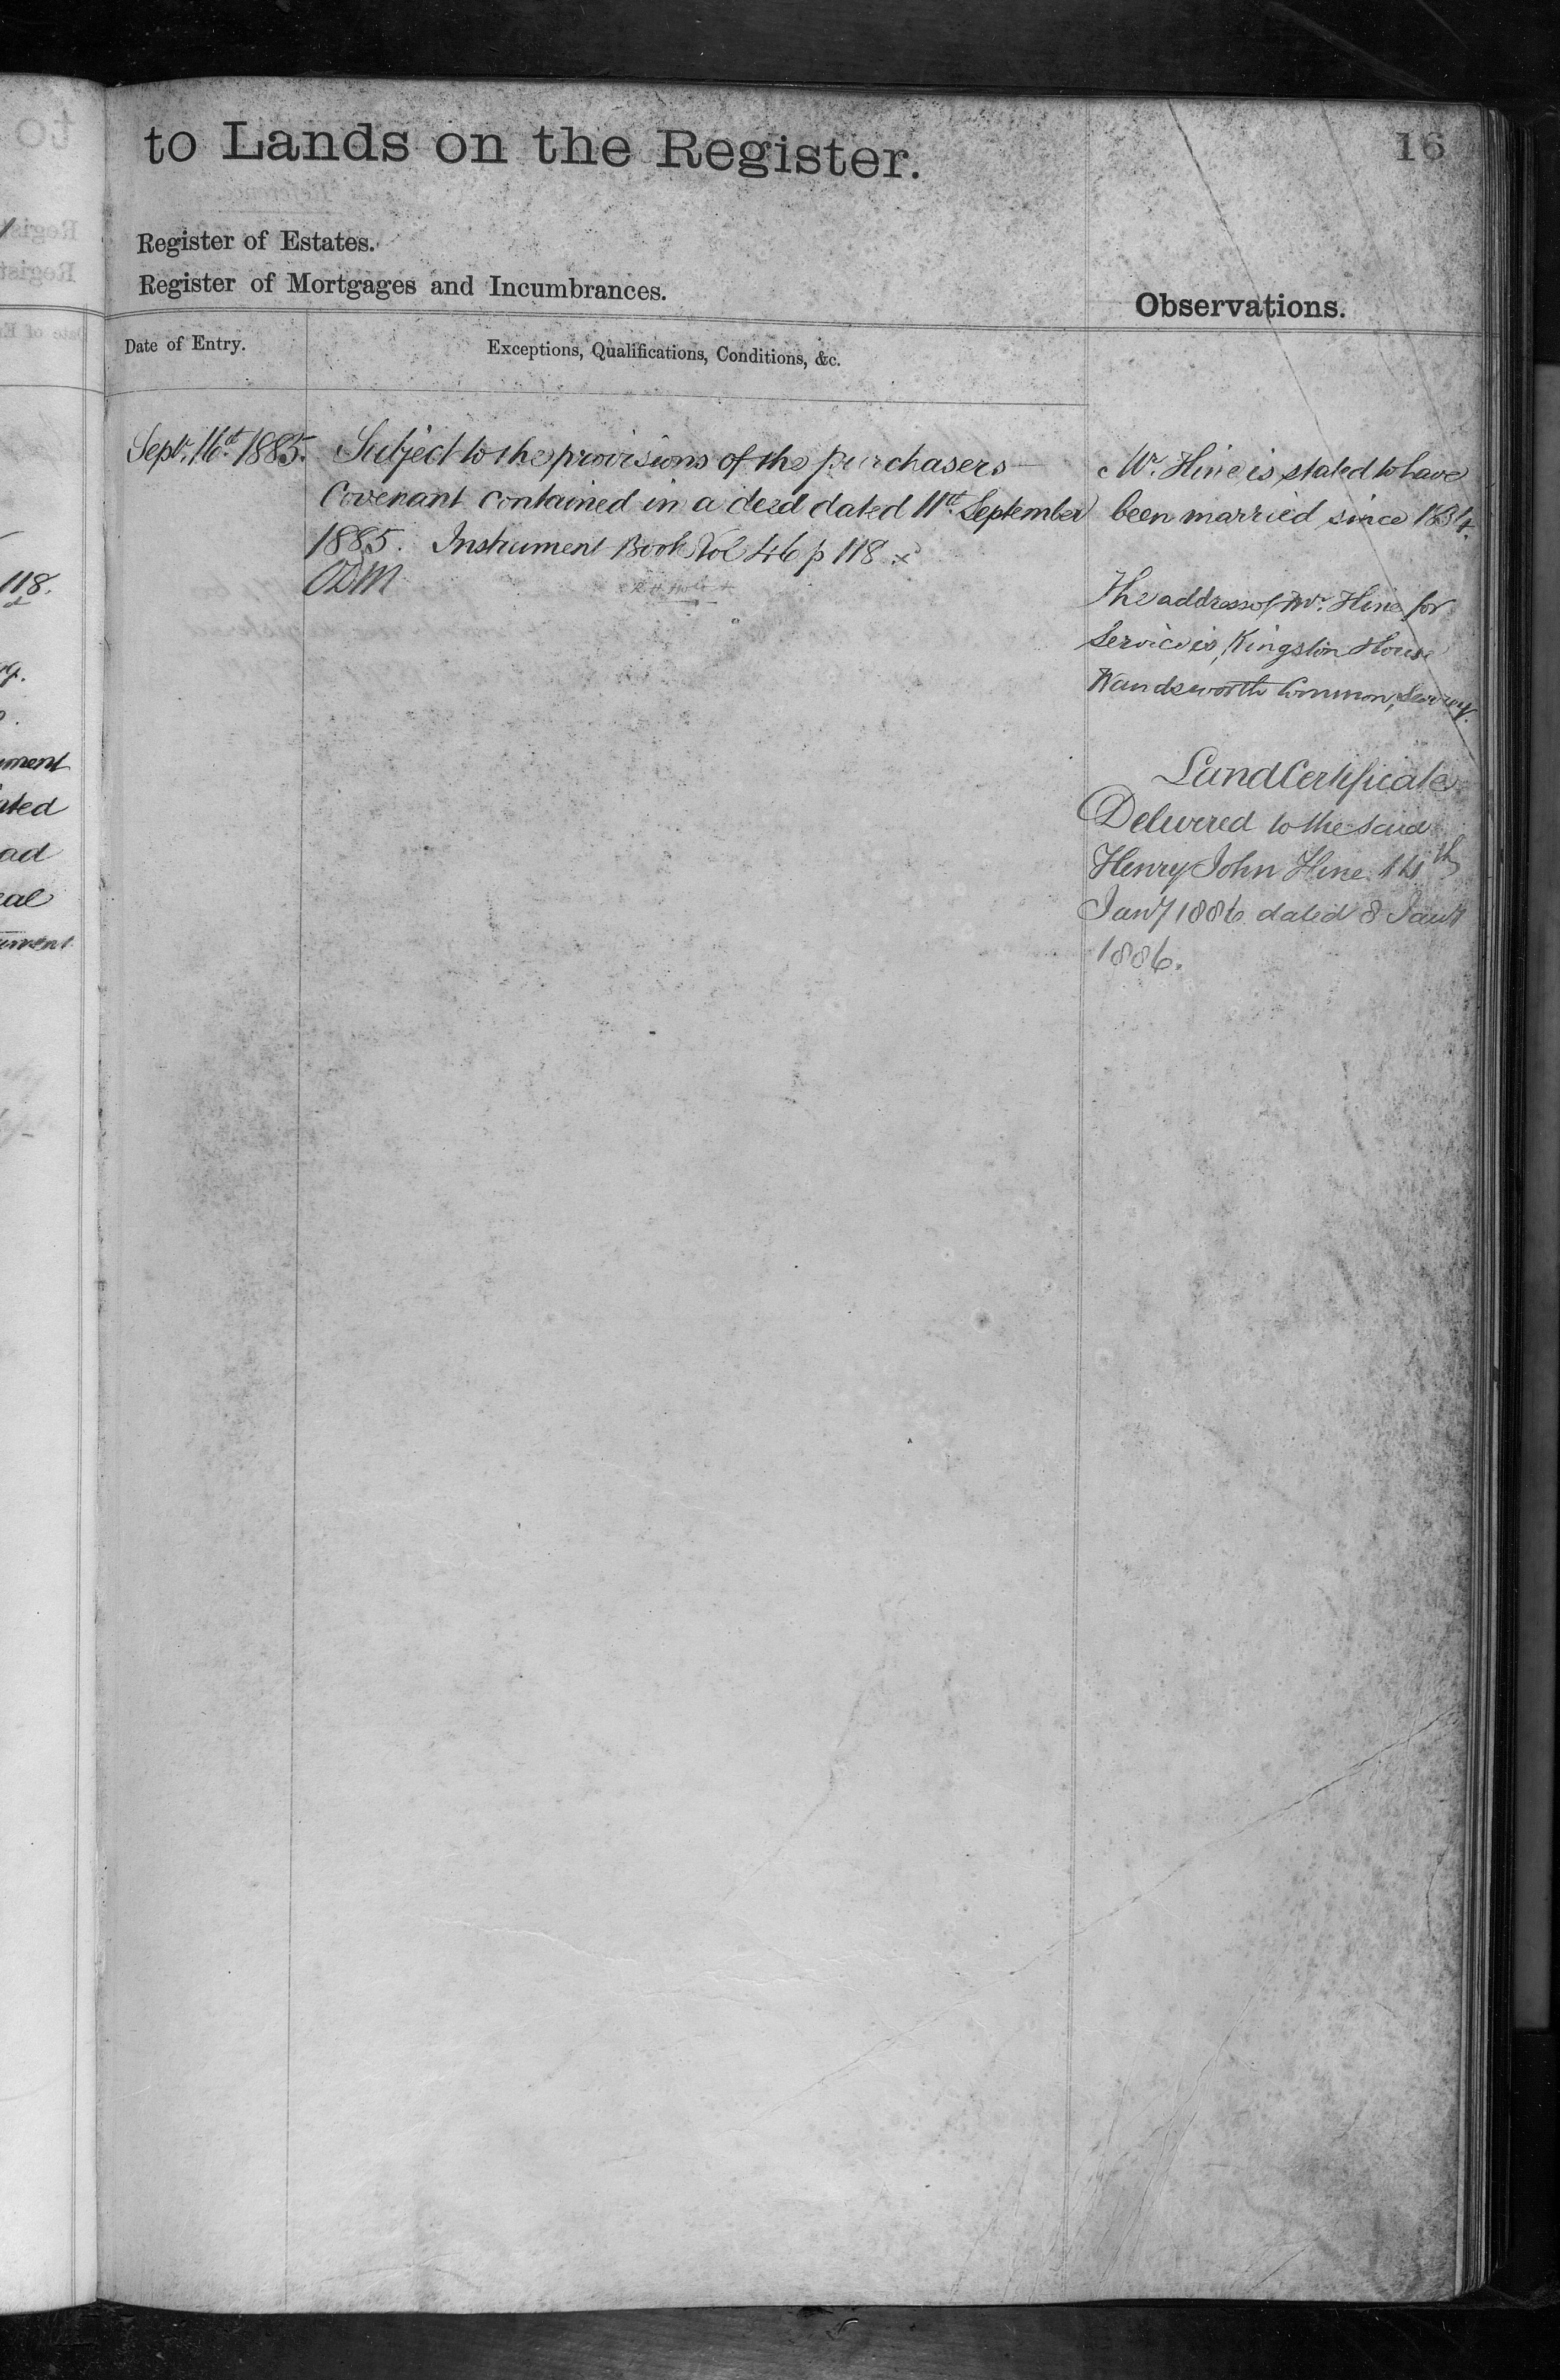 to Lands on the Register.
16
Register of Estates.
Register of Mortgages and Incumbrances.
Observations.
Date of Entry.
Exceptions, Qualifications, Conditions, &c.
Sept. 16th 1885.
Subject to the provisions of the purchasers
Covenant contained in a deed dated 11th September
1885. Instrument Book Vol 46 p 118 x
ODM
Mr. Hine is stated to have
been married since 1834.
The address of Mr. Hine for
Service is, Kingston House
Wandsworth Common, Surrey.
Land Certificate
Delivered to the said
Henry John Hine 14th
Jany 1886 dated 8 Jany
1886.
118.
ument
ated
ad
eal
ument